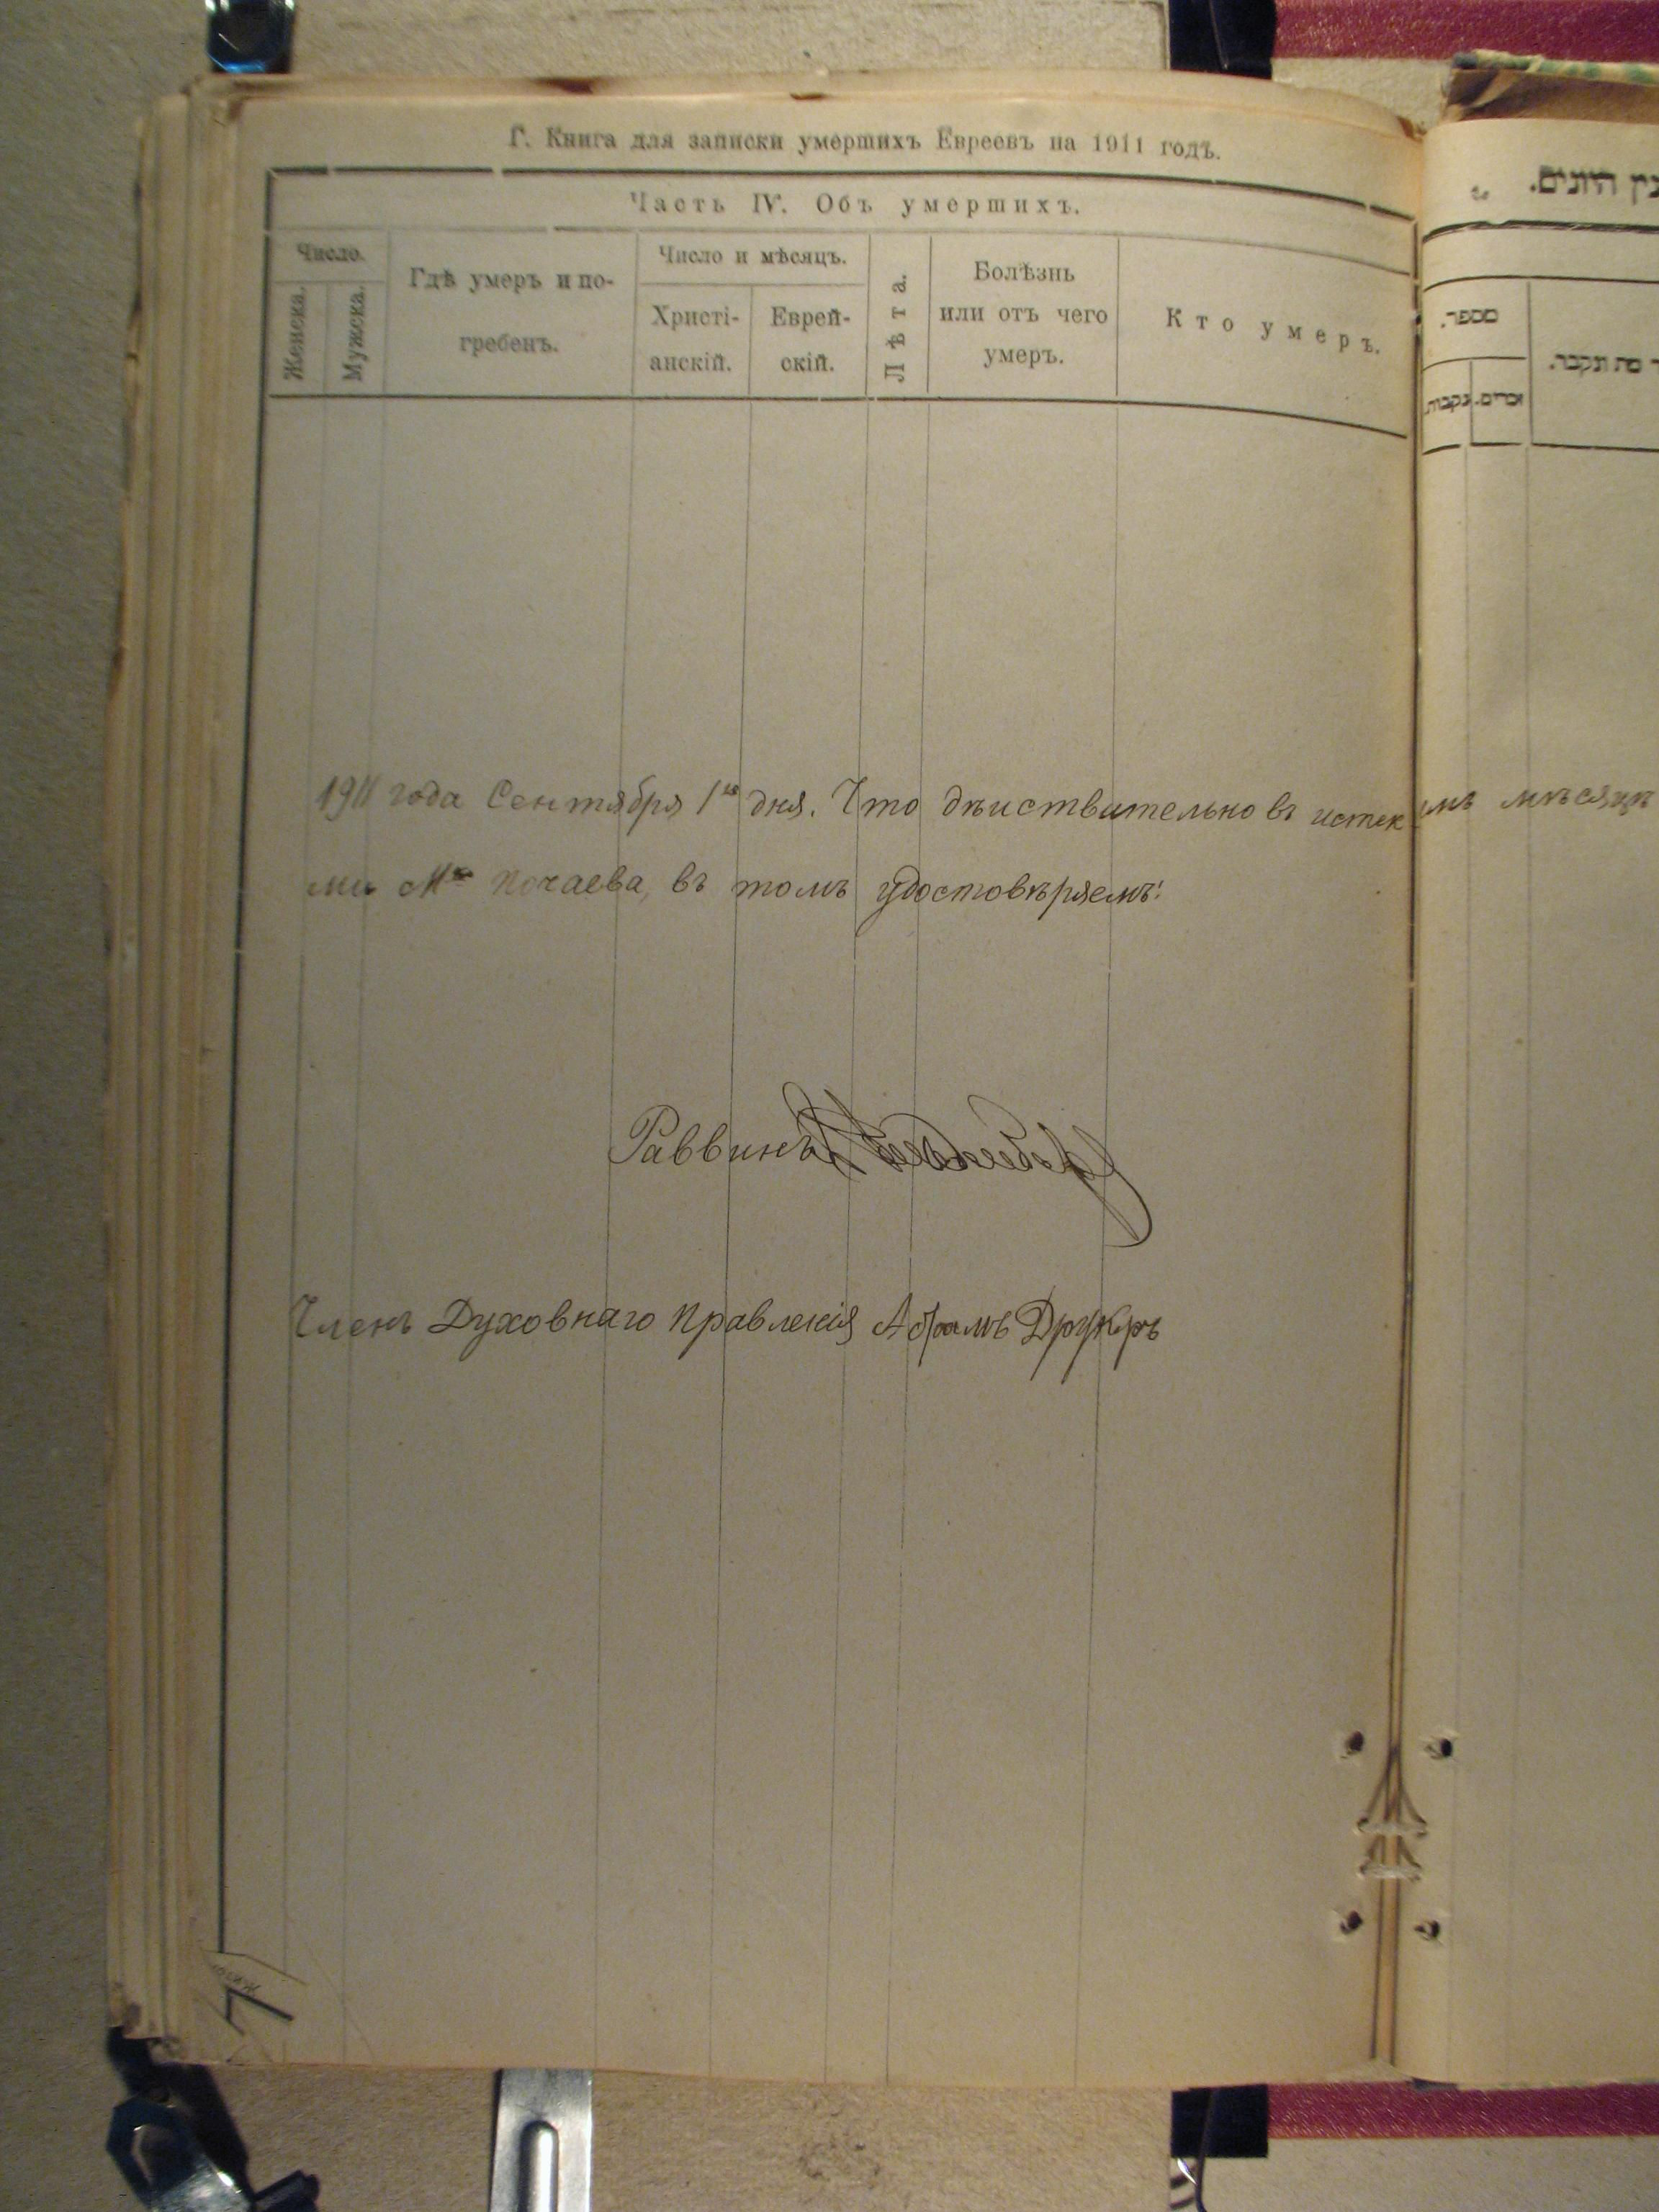 Г. Книга для записки умершихъ Евреевъ на 1911 годъ.
Часть IV. Объ умершихъ.
Число.
Женска.
Мужска.
Гдѣ умеръ и по-
гребенъ.
Число и мѣсяцъ.
Христі-
анскій.
Еврей-
скій.
Лѣта.
Болѣзнь
или отъ чего
умеръ.
Кто умеръ.
מספר.
נקבות.
זכרים.
מת ונקבר.
1911 года Сентября 1го дня. Что дѣиствительно въ истек мъ мѣсяцѣ
ми Мко Почаева, въ томъ удостовѣряемъ:
Раввинъ
Членъ Духовнаго Правленія Абрамъ Друкеръ